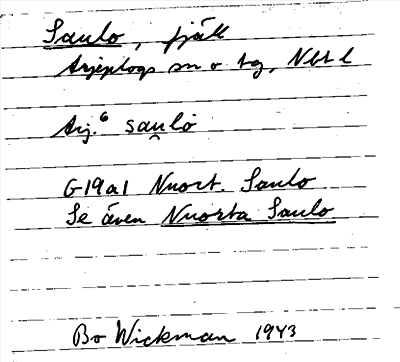 Saulo, fjäll
Arjeplogs sn o tg, Nbt l
Arj.⁶ sau̯lo
G19a1 Nuort. Saulo
Se även Nuorta Saulo
Bo Wickman 1943